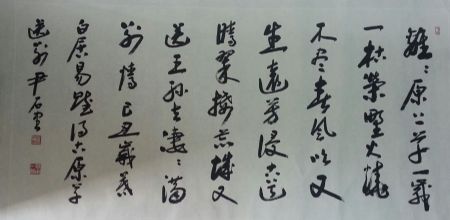 離〻原上草一歲
一枯榮野火燒
不尽春風吹又
生遠芳侵古道
晴翠接荒城又
送王孫去凄〻滿
別情己丑歲暮
白居易賦得古原草
送別尹石